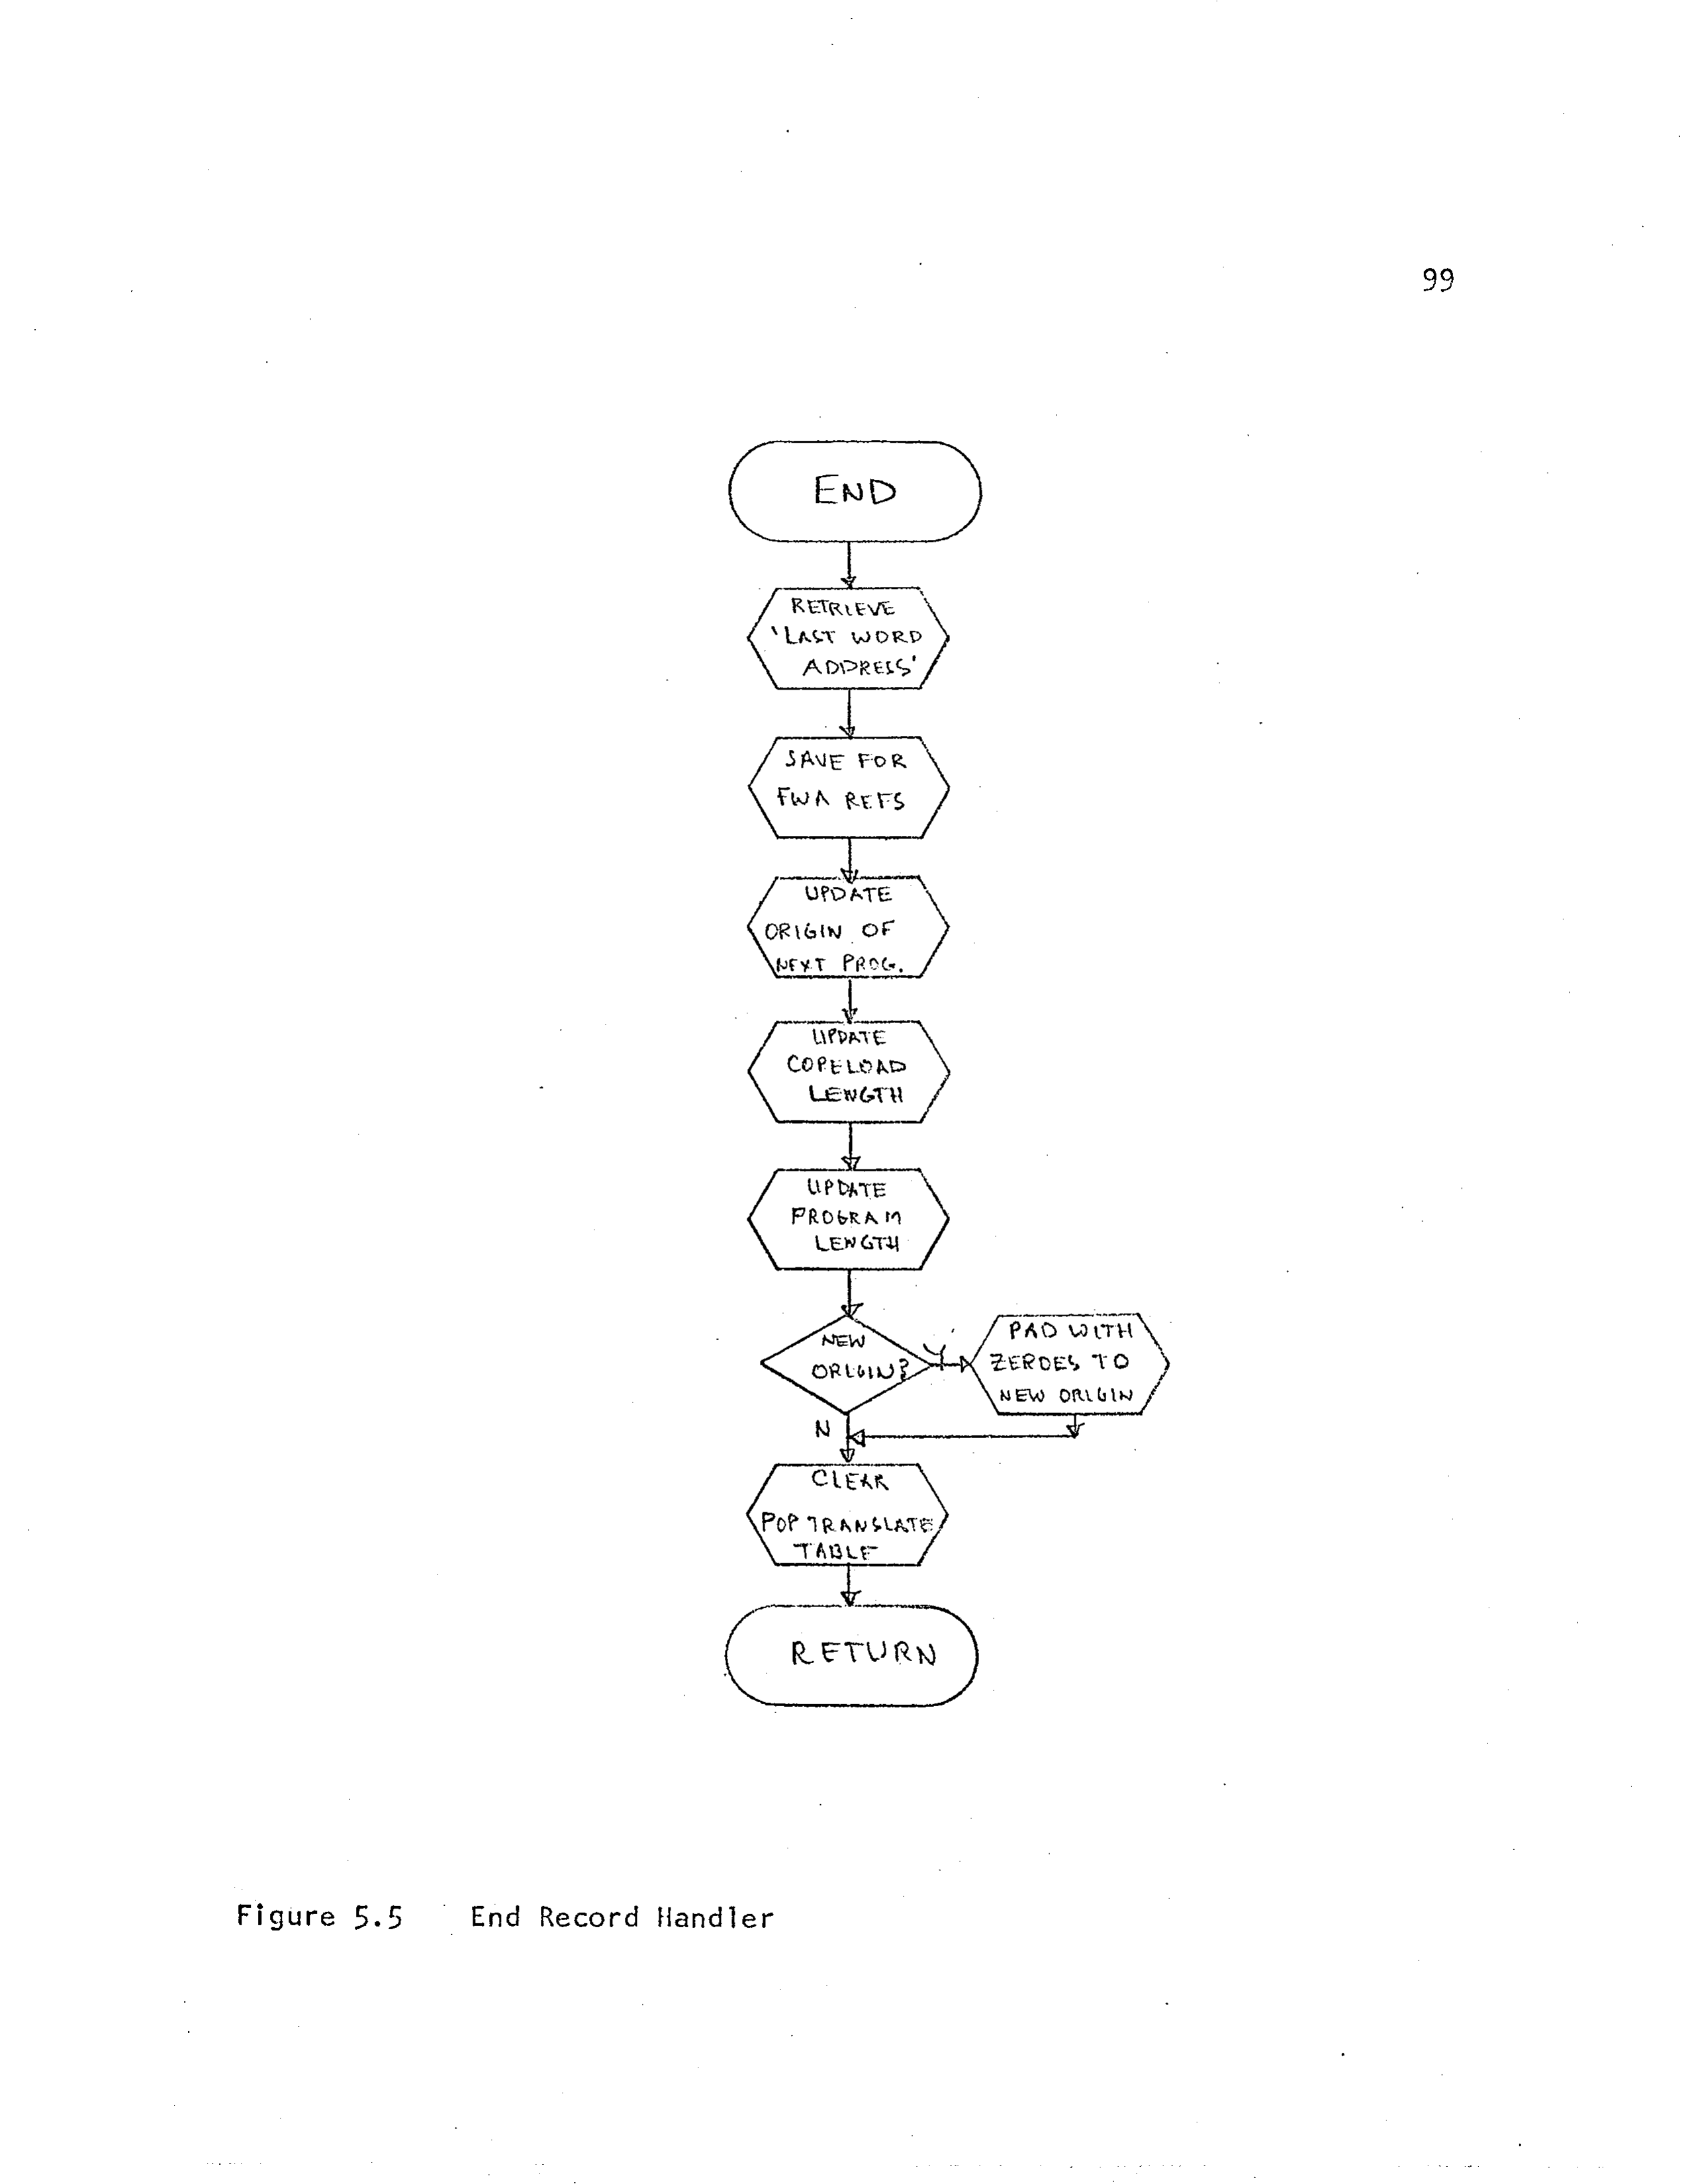 99
END
RETRIEVE
'LAST WORD
ADDRESS'
SAVE FOR
FWA REFS
UPDATE
ORIGIN OF
NEXT PROG.
UPDATE
COPELOAD
LENGTH
UPDATE
PROGRAM
LENGTH
NEW
ORIGIN?
Y
PAD WITH
ZEROES TO
NEW ORIGIN
N
CLEAR
POP TRANSLATE
TABLE
RETURN
Figure 5.5 End Record Handler